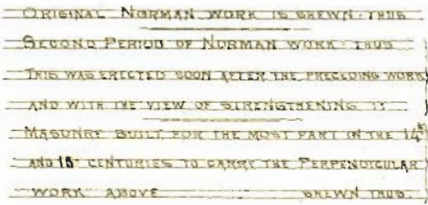 ORIGINAL NORMAN WORK IS SHEWN THUS
SECOND PERIOD OF NORMAN WORK THUS
THIS WAS ERECTED SOON AFTER THE PRECEDING WORK
AND WITH THE VIEW OF STRENGTHENING IT
MASONRY BUILT FOR THE MOST PART IN THE 14th
AND 15th CENTURIES TO CARRY THE PERPENDICULAR
WORK ABOVE SHEWN THUS.